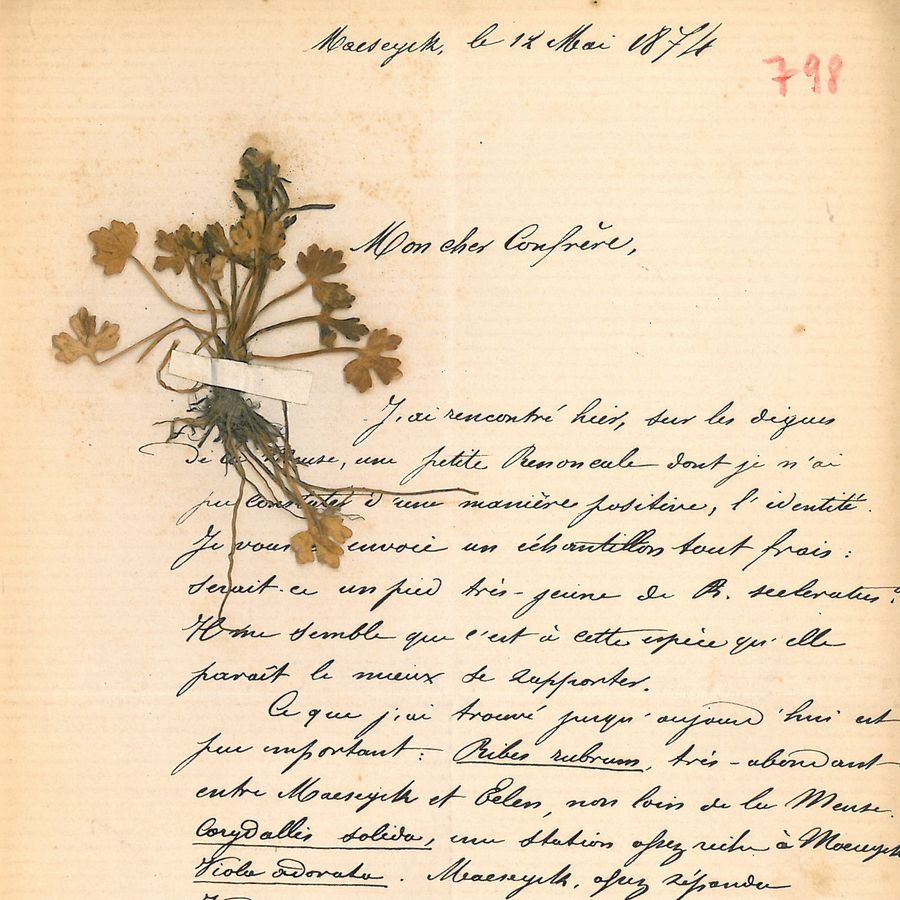 Maeseyck, le 12 Mai 1874
798
Mon cher Confrère,
J'ai rencontré hier, sur les digues
de la Meuse, une petite Renoncule dont je n'ai
pu constater d'une manière positive, l'identité.
Je vous envoie un échantillon tout frais :
serait-ce un pied très-jeune de R. sceleratus ?
Il me semble que c'est à cette espèce qu'elle
paraît le mieux se rapporter.
Ce que j'ai trouvé jusqu'aujourd'hui est
peu important : Ribes rubrum, très-abondant
entre Maeseyck et Eelen, non loin de la Meuse.
Corydallis solida, une station assez riche à Maeseyck
Viola odorata. Maeseyck, assez répandu